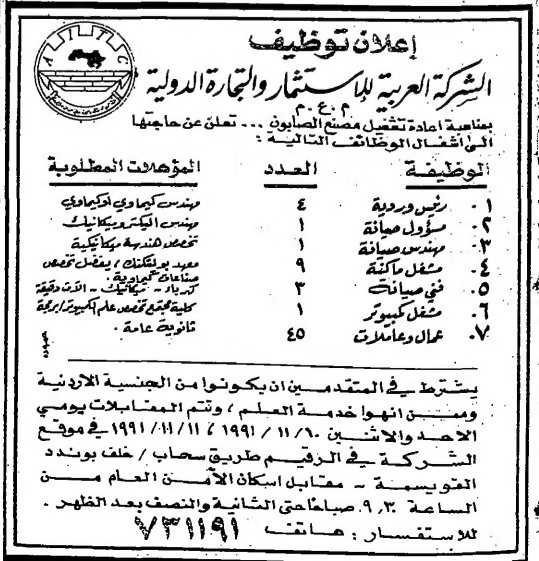 AITC
إعلان توظيف
الشركة العربية للاستثمار والتجارة الدولية
م.ع.م
بمناسبة اعادة تشغيل مصنع الصابون ... تعلن عن حاجتها
الى اشغال الوظائف التالية :
الوظيفة العدد المؤهلات المطلوبة
١. رئيس وردية ٤ مهندس كيماوي أو كيماوي
٢. مسؤول صيانة ١ مهندس اليكتروميكانيك
٣. مهندس صيانة ١ تخصص هندسة ميكانيكية
٤. مشغل ماكنة ٩ معهد بولتكنك / يفضل تخصص
صناعات كيماوية.
٥. فني صيانة ٣ كهرباء - ميكانيك - الآت دقيقة
٦. مشغل كمبيوتر ١ كلية مجتمع تخصص علم الكمبيوتر / برمجة
٧. عمال وعاملات ٤٥ ثانوية عامة.
يشترط في المتقدمين ان يكونوا من الجنسية الاردنية
وممن انهوا خدمة العلم / وتتم المقابلات يومي
الاحد والاثنين ١٠/١١/١٩٩١ ، ١١/١١/١٩٩١ في موقع
الشركة في الرقيم طريق سحاب / خلف بوندد
القويسمة - مقابل اسكان الأمن العام من
الساعة ٩,٣٠ صباحاً حتى الثانية والنصف بعد الظهر.
للاستفسار : هاتف ٧٣١١٩١